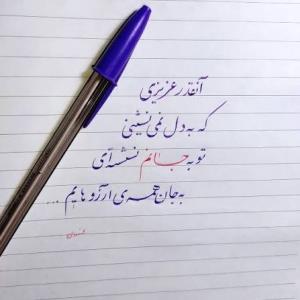 آنقدر عزیزی
که به دل نمی نشینی
تو به جانم نشسته ای
به جان همه ی آرزوهایم ...